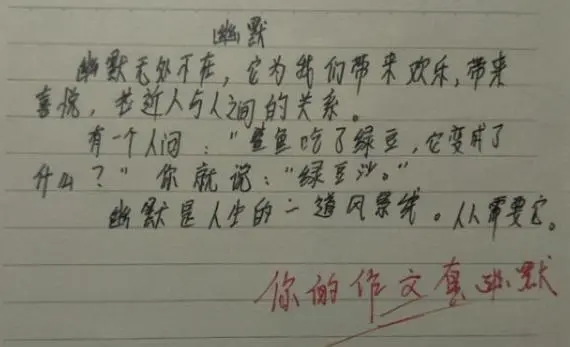 幽默
幽默无处不在，它为我们带来欢乐，带来
喜悦，拉近人与人之间的关系。
有一个人问："鲨鱼吃了绿豆，它变成了
什么？"你就说："绿豆沙。"
幽默是人生的一道风景线。人人需要它。
你的作文真幽默